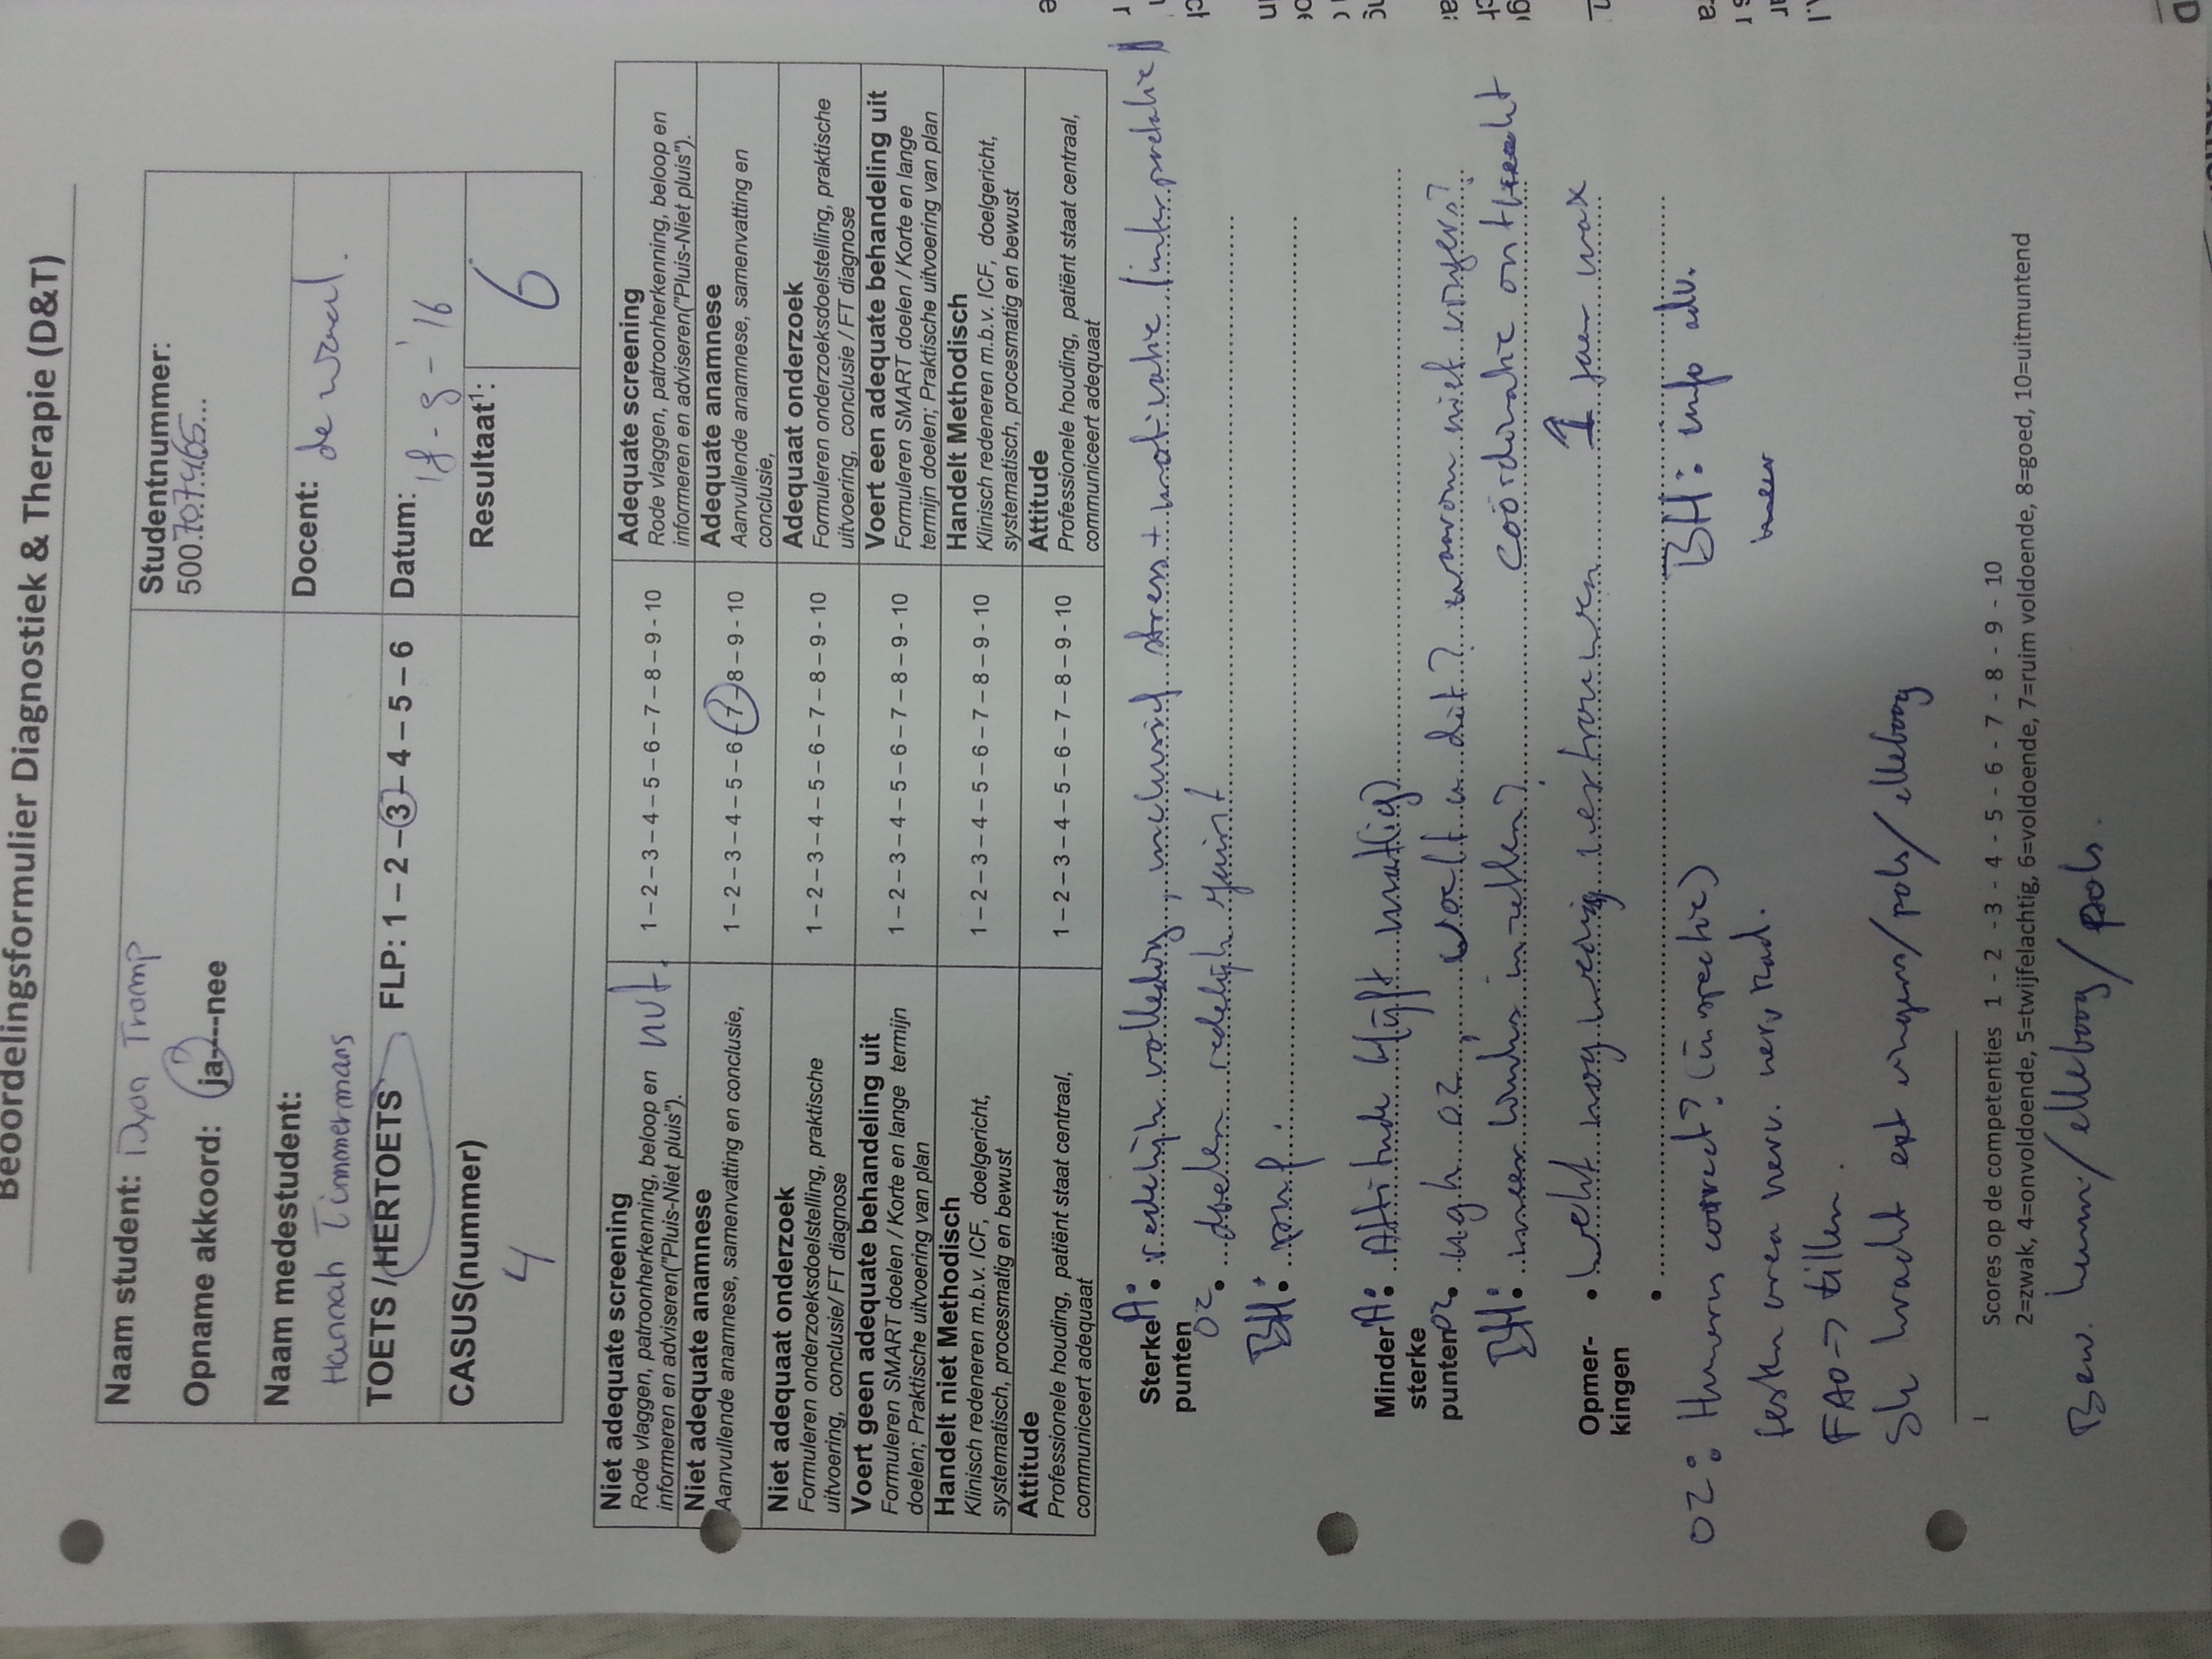 Beoordelingsformulier Diagnostiek & Therapie (D&T)
Naam student: Dyon Tromp
Studentnummer:
500.707465...
Opname akkoord: ja----nee
Naam medestudent:
Hannah Timmermans
Docent: de Waal.
TOETS / HERTOETS FLP: 1 – 2 – 3 – 4 – 5 – 6
Datum: 18 - 3 - '16
CASUS(nummer)
4
Resultaat¹: 6
Niet adequate screening
Rode vlaggen, patroonherkenning, beloop en
informeren en adviseren("Pluis-Niet pluis").
nvt.
1 – 2 – 3 – 4 – 5 – 6 – 7 – 8 – 9 - 10
Adequate screening
Rode vlaggen, patroonherkenning, beloop en
informeren en adviseren("Pluis-Niet pluis").
Niet adequate anamnese
Aanvullende anamnese, samenvatting en conclusie,
1 – 2 – 3 – 4 – 5 – 6 – 7 – 8 – 9 - 10
Adequate anamnese
Aanvullende anamnese, samenvatting en
conclusie,
Niet adequaat onderzoek
Formuleren onderzoeksdoelstelling, praktische
uitvoering, conclusie/ FT diagnose
1 – 2 – 3 – 4 – 5 – 6 – 7 – 8 – 9 - 10
Adequaat onderzoek
Formuleren onderzoeksdoelstelling, praktische
uitvoering, conclusie / FT diagnose
Voert geen adequate behandeling uit
Formuleren SMART doelen / Korte en lange termijn
doelen; Praktische uitvoering van plan
1 – 2 – 3 – 4 – 5 – 6 – 7 – 8 – 9 - 10
Voert een adequate behandeling uit
Formuleren SMART doelen / Korte en lange
termijn doelen; Praktische uitvoering van plan
Handelt niet Methodisch
Klinisch redeneren m.b.v. ICF, doelgericht,
systematisch, procesmatig en bewust
1 – 2 – 3 – 4 – 5 – 6 – 7 – 8 – 9 - 10
Handelt Methodisch
Klinisch redeneren m.b.v. ICF, doelgericht,
systematisch, procesmatig en bewust
Attitude
Professionele houding, patiënt staat centraal,
communiceert adequaat
1 – 2 – 3 – 4 – 5 – 6 – 7 – 8 – 9 - 10
Attitude
Professionele houding, patiënt staat centraal,
communiceert adequaat
Sterke A: • redelijk volledig, inclusief stress + motivatie (interpretatie)
punten
OZ • doelen redelijk gericht
BH: •
Minder A: • Attitude blijft matig
sterke
punten OZ • LO OZ, voelt u dit? waarom niet vingers?
BH: • meer links intillen? coördinatie
Opmer- • wekt nog weinig vertrouwen 1 jaar max
kingen
•
BH: info adv.
meer
OZ: Humerus correct? (inspectie)
testen area nerv. nerv rad.
FAO → tillen.
Sl kracht ext vingers/pols/elleboog
Bew. hum/elleboog/pols.
1
Scores op de competenties 1 - 2 - 3 - 4 - 5 - 6 - 7 - 8 - 9 - 10
2=zwak, 4=onvoldoende, 5=twijfelachtig, 6=voldoende, 7=ruim voldoende, 8=goed, 10=uitmuntend